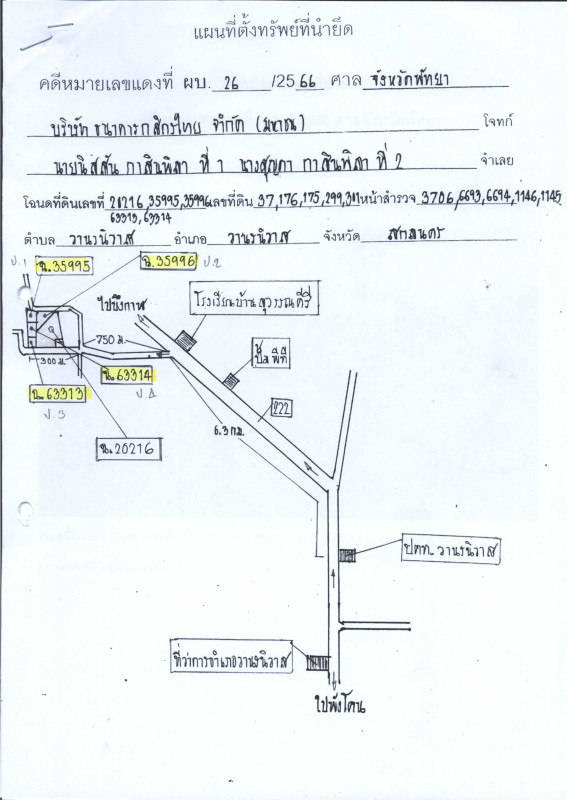 แผนที่ตั้งทรัพย์ที่นำยึด
คดีหมายเลขแดงที่ ผบ. 26 /2566 ศาล จังหวัดพัทยา
บริษัท ธนาคารกสิกรไทย จำกัด (มหาชน) โจทก์
ที่ 1 ที่ 2 จำเลย
โฉนดที่ดินเลขที่ 20216, 35995, 35996 เลขที่ดิน 37, 176, 175, 299, 301 หน้าสำรวจ 3706, 6693, 6694, 1146, 1145
63313, 63314
ตำบล วานรนิวาส อำเภอ วานรนิวาส จังหวัด สกลนคร
ป.1
ฉ.35995
ฉ.35996
ป.2
ไปบึงกาฬ
โรงเรียนบ้านสุวรรณคีรี
750 ม.
ปั๊ม พีที
300 ม.
ฉ.63314
ฉ.63313
ป.4
ป.3
222
6.3 กม.
ฉ.20216
ปตท. วานรนิวาส
ที่ว่าการอำเภอวานรนิวาส
ไปพังโคน